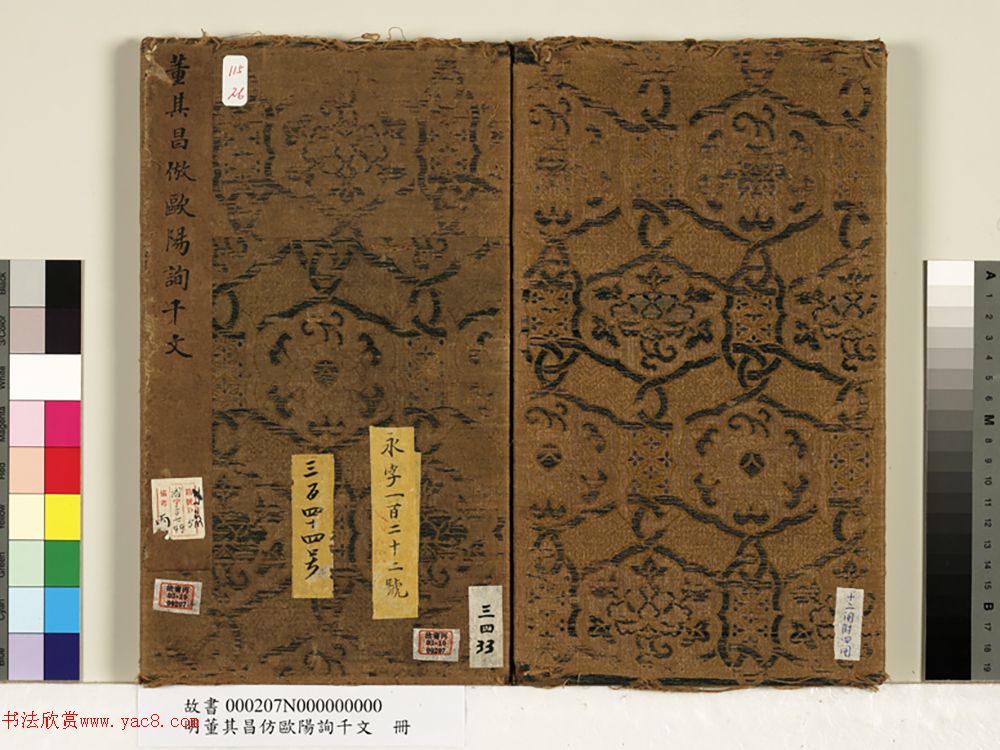 董其昌倣歐陽詢千文
115
26
永字一百二十二號
三百四十四号
備考
故書丙
02-10
00207
故書丙
02-10
00207
三四
33
十二開附四開
故書 000207N000000000
明董其昌仿歐陽詢千文 冊
书法欣赏www.yac8.com
Black
3/Color
White
Magenta
Red
Yellow
Green
Cyan
Blue
A
1
2
3
4
5
6
M
8
9
10
11
12
13
14
15
B
17
18
19